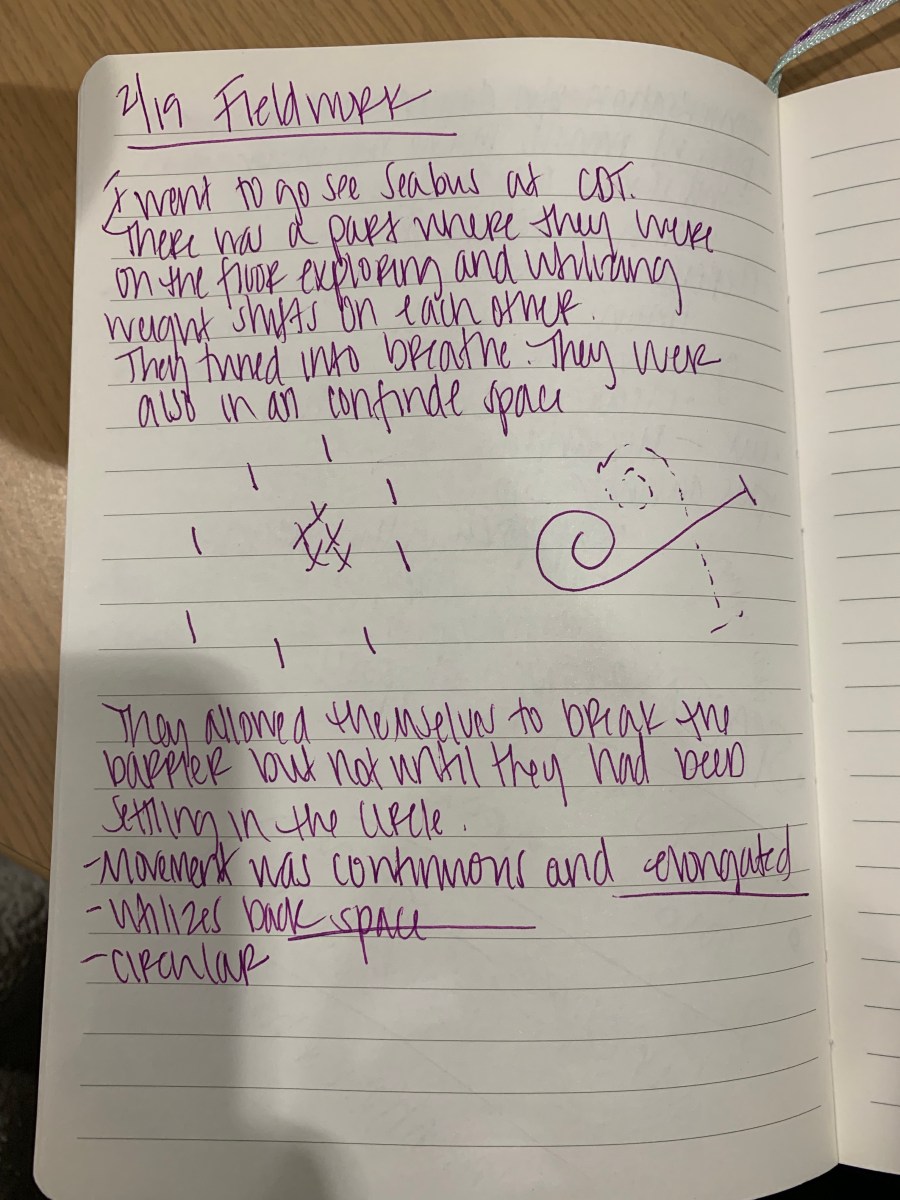 2/19 Fieldwork
I went to go see Seabus at CDT.
There was a part where they were
on the floor exploring and utilizang
weight shifts on each other.
They tuned into breathe. They were
also in an confinde space
They allowed themselves to break the
barrier but not until they had been
settling in the circle.
-Movement was continuous and elongated
-Utilizes back space
-circular